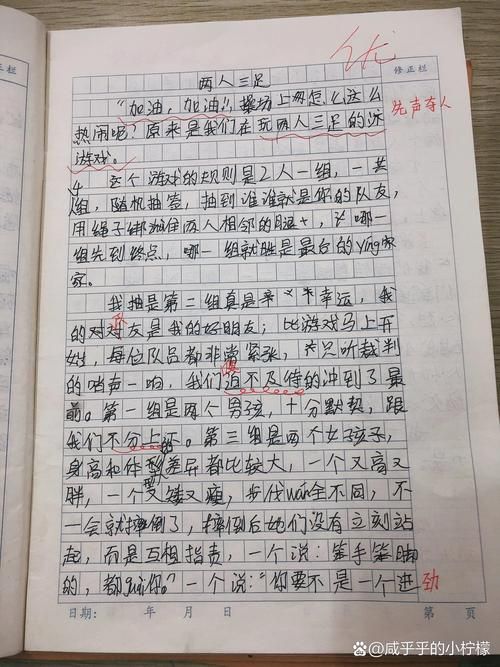 优
修正栏
两人三足
"加油,加油!"操场上为怎么这么
先声夺人
热闹呢?原来是我们在玩两人三足的
游戏。
这个游戏的规则是2人一组,一共
4组,随机抽签,抽到谁谁就是你的队友,
用绳子绑住两人相邻的腿上,让哪一
组先到终点,哪一组就胜是最后的ying家
家。
我抽是第二组真是幸运,我
的对友是我的好朋友;比游戏马上开
始,每位队员都非常紧张,只听裁判
的哨声一响,我们迫不及待的冲到了最
前。第一组是两个男孩,十分默契,跟
我们不分上下。第三组是两个女孩子,
身高和体型差异都比较大,一个又高又
胖,一个又矮又瘦,步伐wan全不同,不
一会就摔倒了,摔倒后她们没有立刻站
起,而是互相指责,一个说:笨手笨脚
的,都guai你。"一个说:"你要不是一个进
劲
日期: 年 月 日 第 页
@咸乎乎的小柠檬